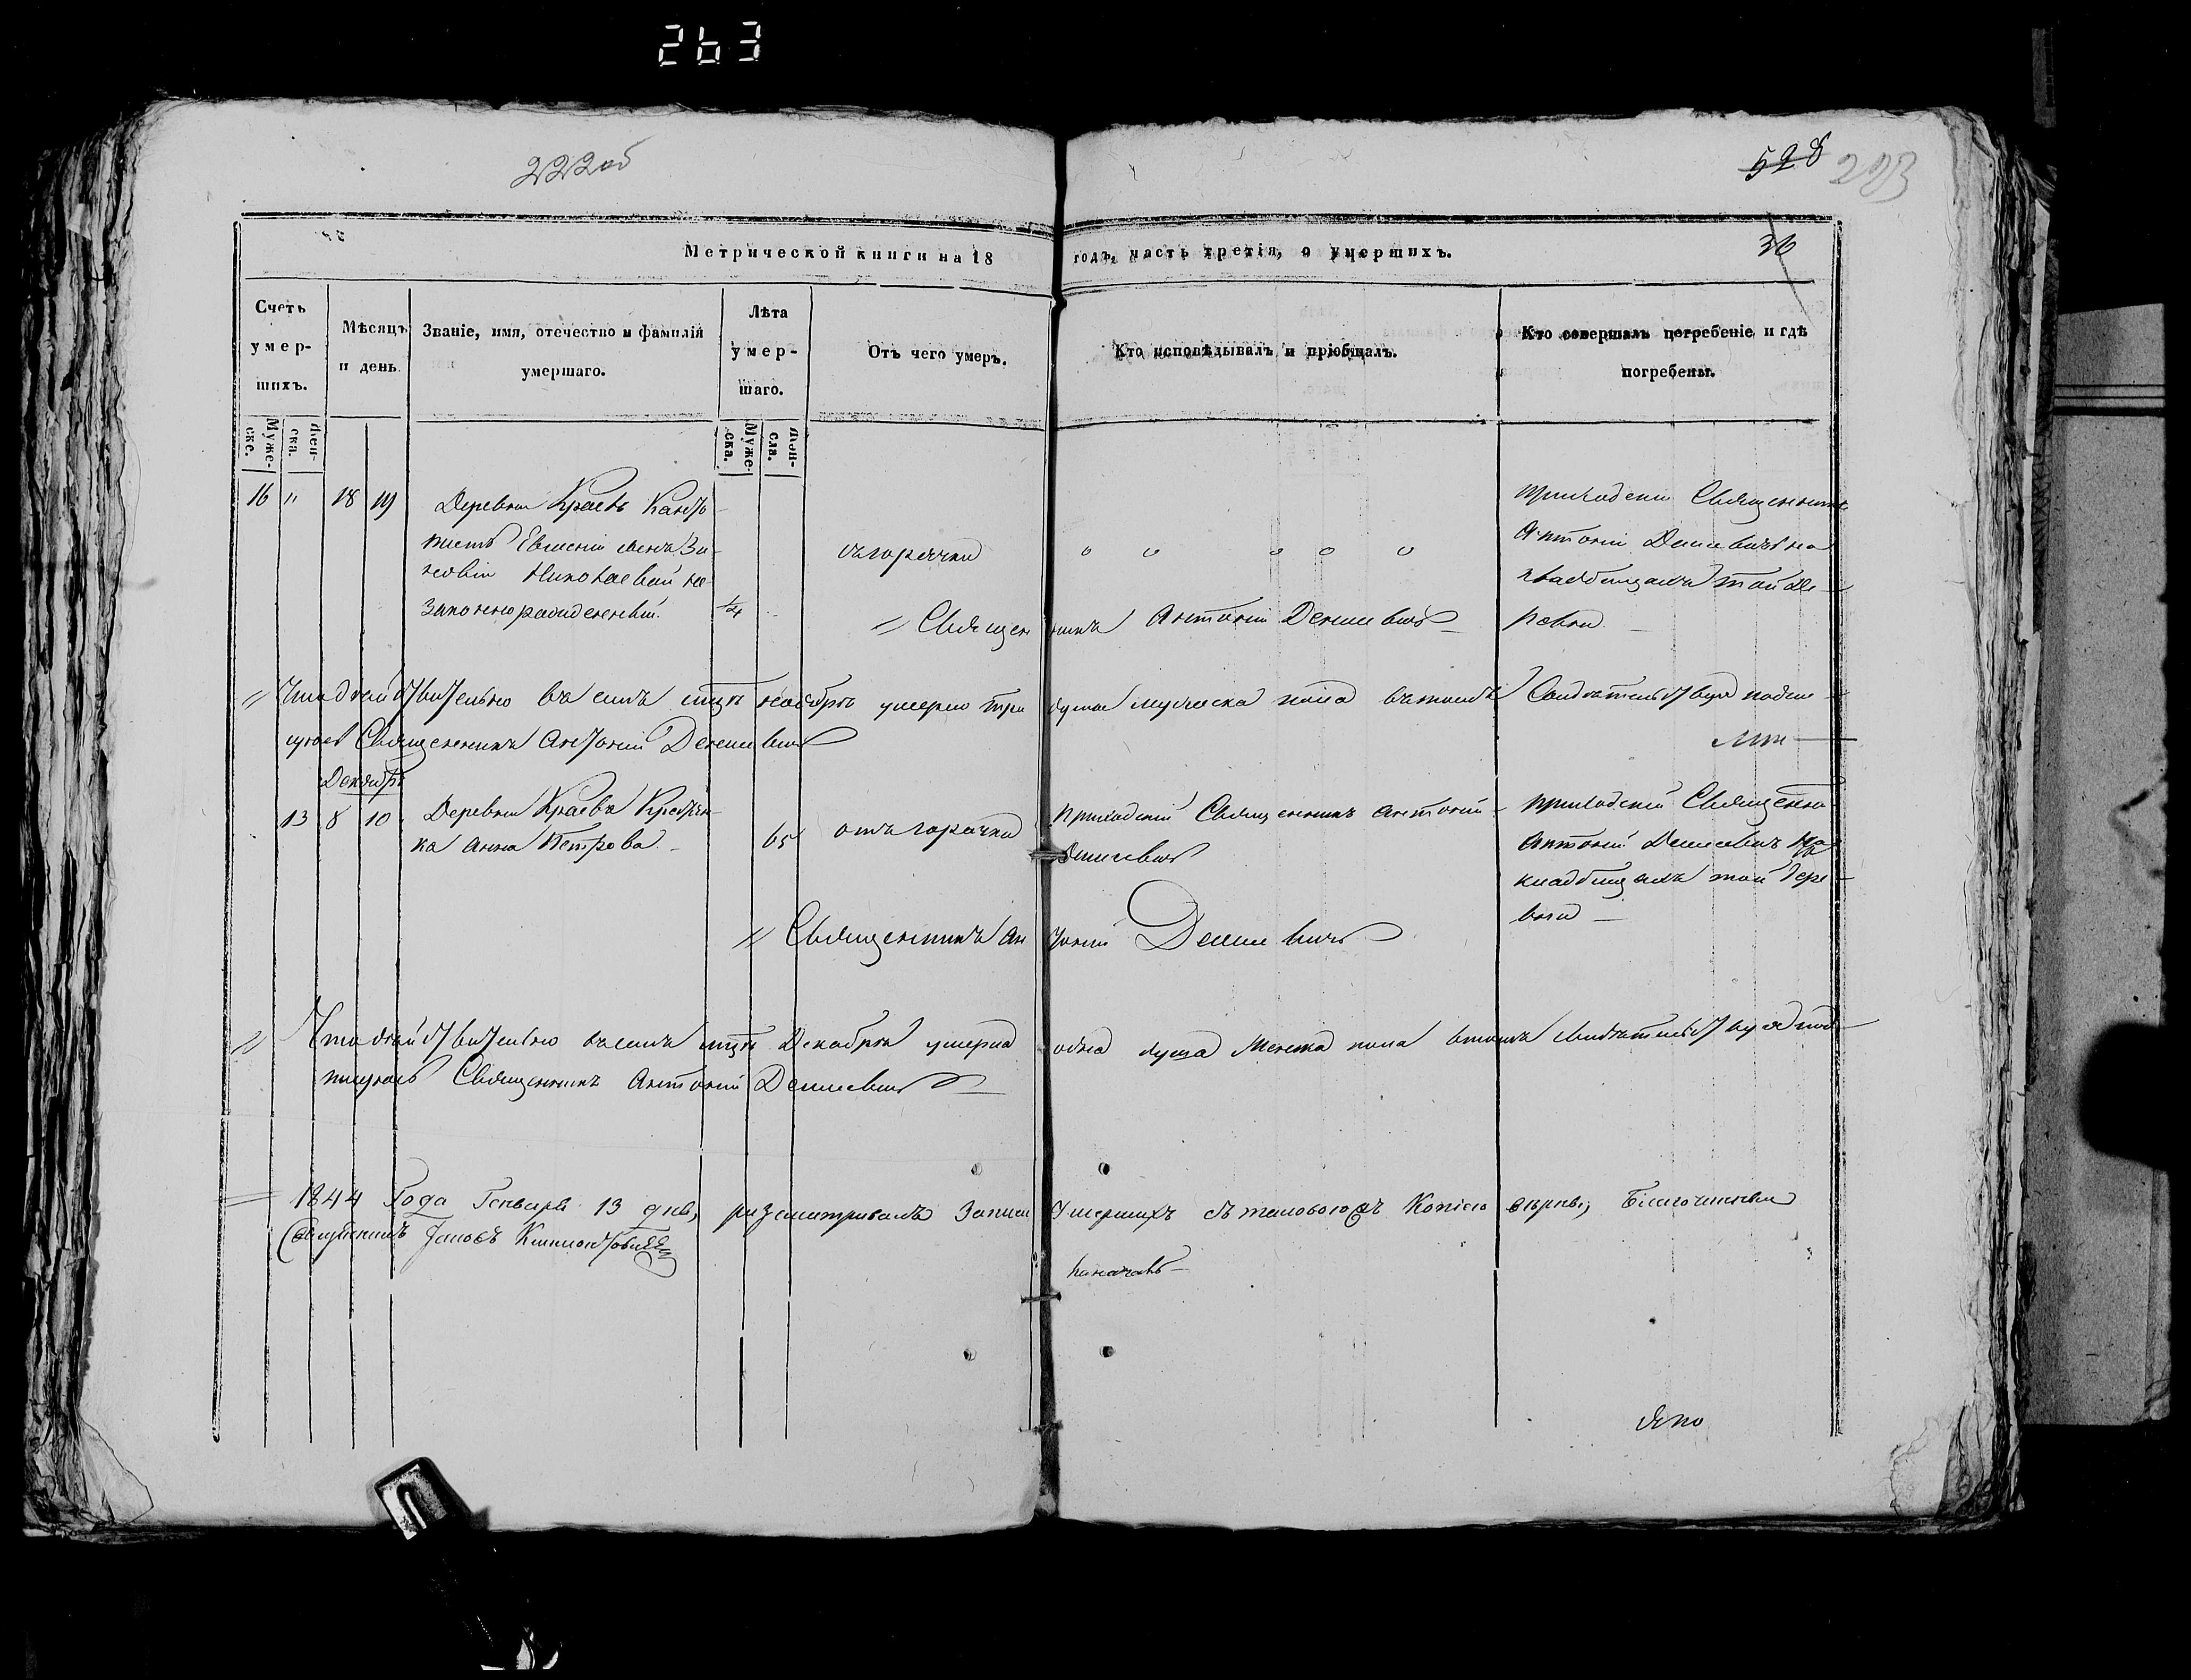 263
222об
528 223
Метрической книги на 18 годъ, часть третія, о умершихъ.
36
Счетъ умер-шихъ.
Мѣсяцъ и день.
Званіе, имя, отечество и фамилій умершаго.
Лѣта умер-шаго.
Отъ чего умеръ.
Кто исповѣдывалъ и пріобщалъ.
Кто совершалъ погребеніе и гдѣ погребены.
Муже-ске. Жен-ска. Муже-ска. Жен-ска.
16 " 18 19 Деревни Краевъ Канто-
Евгеній
Николаевой не
законнорожденный. 1/4
горячки
приходскій Священникъ
Антоній Денисевичъ на
кладбищахъ той де-
ревни.
// Священникъ Антоній Денисевичъ
// Что дѣйствительно въ семъ мцѣ ноябрѣ умерло три души мужеска пола въ томъ Свидѣтельствую и подпи-
суюсь Священникъ Антоній Денисевичъ
Декабрь
13 8 10 Деревни Краевъ Крестьян-
ка Анна Петрова. 65 отъ горячки
приходскій Священникъ Антоній
Денисевичъ
приходскій Священно
Антоній Денисевичъ на
кладбищахъ той дере-
вни
// Священникъ Антоній Денисевичъ
// Что дѣйствительно въ семъ мцѣ Декабрѣ умерла одна душа женска пола въ томъ свидѣтельствую и под-
писуюсь Священникъ Антоній Денисевичъ
1844 Года Генваря 13 дня, разсматривалъ Записи Умершихъ съ таковою Копіею вѣрны, Благочинный
Священникъ